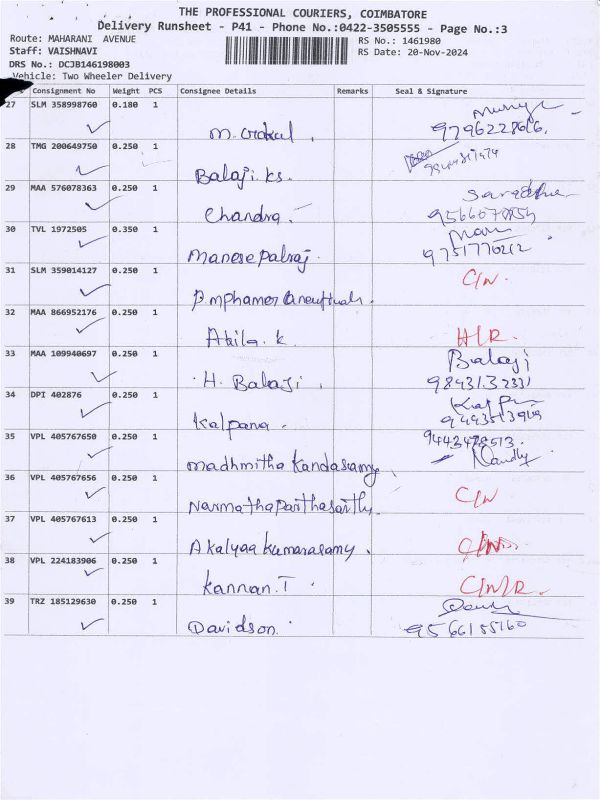 THE PROFESSIONAL COURIERS, COIMBATORE
Delivery Runsheet - P41 - Phone No.:0422-3505555 - Page No.:3
Route: MAHARANI AVENUE
RS No.: 1461980
Staff: VAISHNAVI
RS Date: 20-Nov-2024
DRS No.: DCJB146198003
Vehicle: Two Wheeler Delivery
Consignment No Weight PCS Consignee Details Remarks Seal & Signature
27 SLM 358998760 0.180 1
M. Gokul.
28 TMG 200649750 0.250 1
Balaji.ks.
29 MAA 576078363 0.250 1
Chandra.
30 TVL 1972505 0.350 1
31 SLM 359014127 0.250 1 C/N.
32 MAA 866952176 0.250 1
Akila.k. H/R.
33 MAA 109940697 0.250 1 Balaji
H. Balaji.
34 DPI 402876 0.250 1
Kalpana.
35 VPL 405767650 0.250 1
Madhmitha Kandasamy
36 VPL 405767656 0.250 1 C/N
Narmatha Parthasarthy.
37 VPL 405767613 0.250 1
Akalyaa Kumarasamy.
38 VPL 224183906 0.250 1
Kannan.T. C/N/R.
39 TRZ 185129630 0.250 1
Davidson. 9566155160